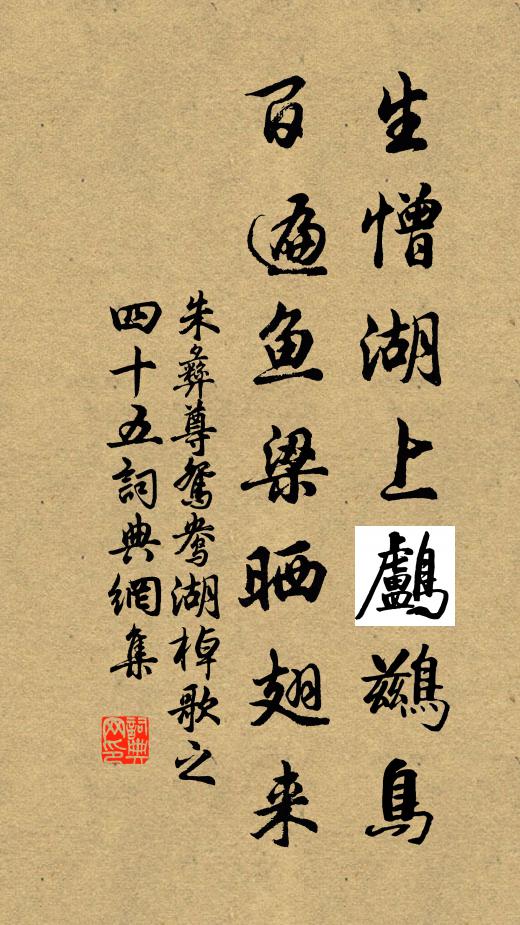 生憎湖上鸕鷀鳥
百遍鱼梁晒翅来
朱彝尊鸳鸯湖棹歌之
四十五詞典網集
詞典网印